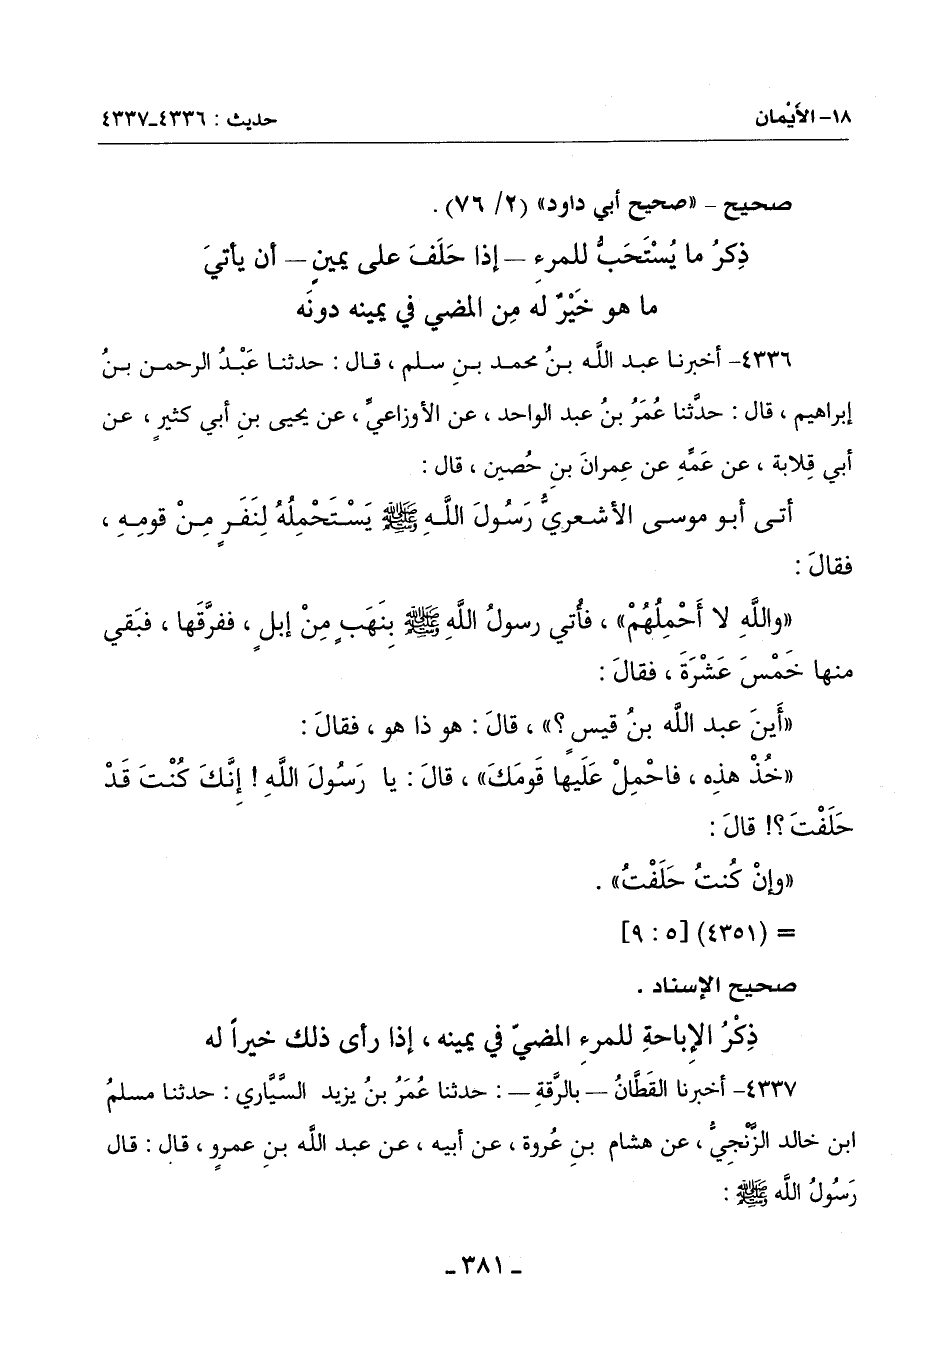 ١٨- الأَيْمان حديث : ٤٣٣٦ـ٤٣٣٧
صحيح – «صحيح أبي داود» (٢/ ٧٦) .
ذِكرُ ما يُسْتَحَبُّ للمرءِ – إذا حَلَفَ على يمينٍ – أن يأتيَ
ما هو خَيْرٌ له مِن المضي في يمينه دونَه
٤٣٣٦- أخبرنا عبد اللَّه بنُ محمد بـنِ سـلم ، قـال : حدثنـا عَبْـدُ الرحمـن بـنُ
إبراهيم ، قال : حدَّثنا عُمَرُ بنُ عبد الواحد ، عن الأوزاعيِّ ، عن يحيى بنِ أبي كثيرٍ ، عن
أبي قِلابة ، عن عَمِّهِ عن عِمرانَ بنِ حُصين ، قال :
أتـى أبـو موسـى الأشـعريُّ رَسُـولَ اللَّـهِ ﷺ يَسْـتَحْمِلُهُ لِنَفَـرٍ مِـنْ قومِـهِ ،
فقالَ :
«واللَّهِ لا أَحْمِلُهُمْ» ، فأُتي رسولُ اللَّهِ ﷺ بِنَهَبٍ مِنْ إبلٍ ، ففرَّقَها ، فبَقي
منها خَمْسَ عَشْرَةَ ، فقالَ :
«أَينَ عبد اللَّه بنُ قيسٍ ؟» ، قالَ : هو ذا هو ، فقالَ :
«خُذْ هذِه ، فاحْمِلْ عَلَيها قَومَكَ» ، قالَ : يا رَسُولَ اللَّهِ ! إِنَّكَ كُنْتَ قَدْ
حَلَفْتَ ؟! قالَ :
«وإنْ كُنتُ حَلَفْتُ» .
= (٤٣٥١) [٥ : ٩]
صحيح الإسناد .
ذِكْرُ الإباحةِ للمرءِ المضيّ في يمينه ، إذا رأى ذلك خيراً له
٤٣٣٧- أخبرنا القَطَّانُ – بالرَّقةِ – : حدثنا عُمَرُ بنُ يزيد السَّيَّاري : حدثنا مسلمُ
ابن خالد الزَّنْجيُّ ، عن هشام بنِ عُروة ، عن أبيه ، عن عبد اللَّه بنِ عمروٍ ، قال : قال
رَسُولُ اللَّه ﷺ :
ـ ٣٨١ ـ